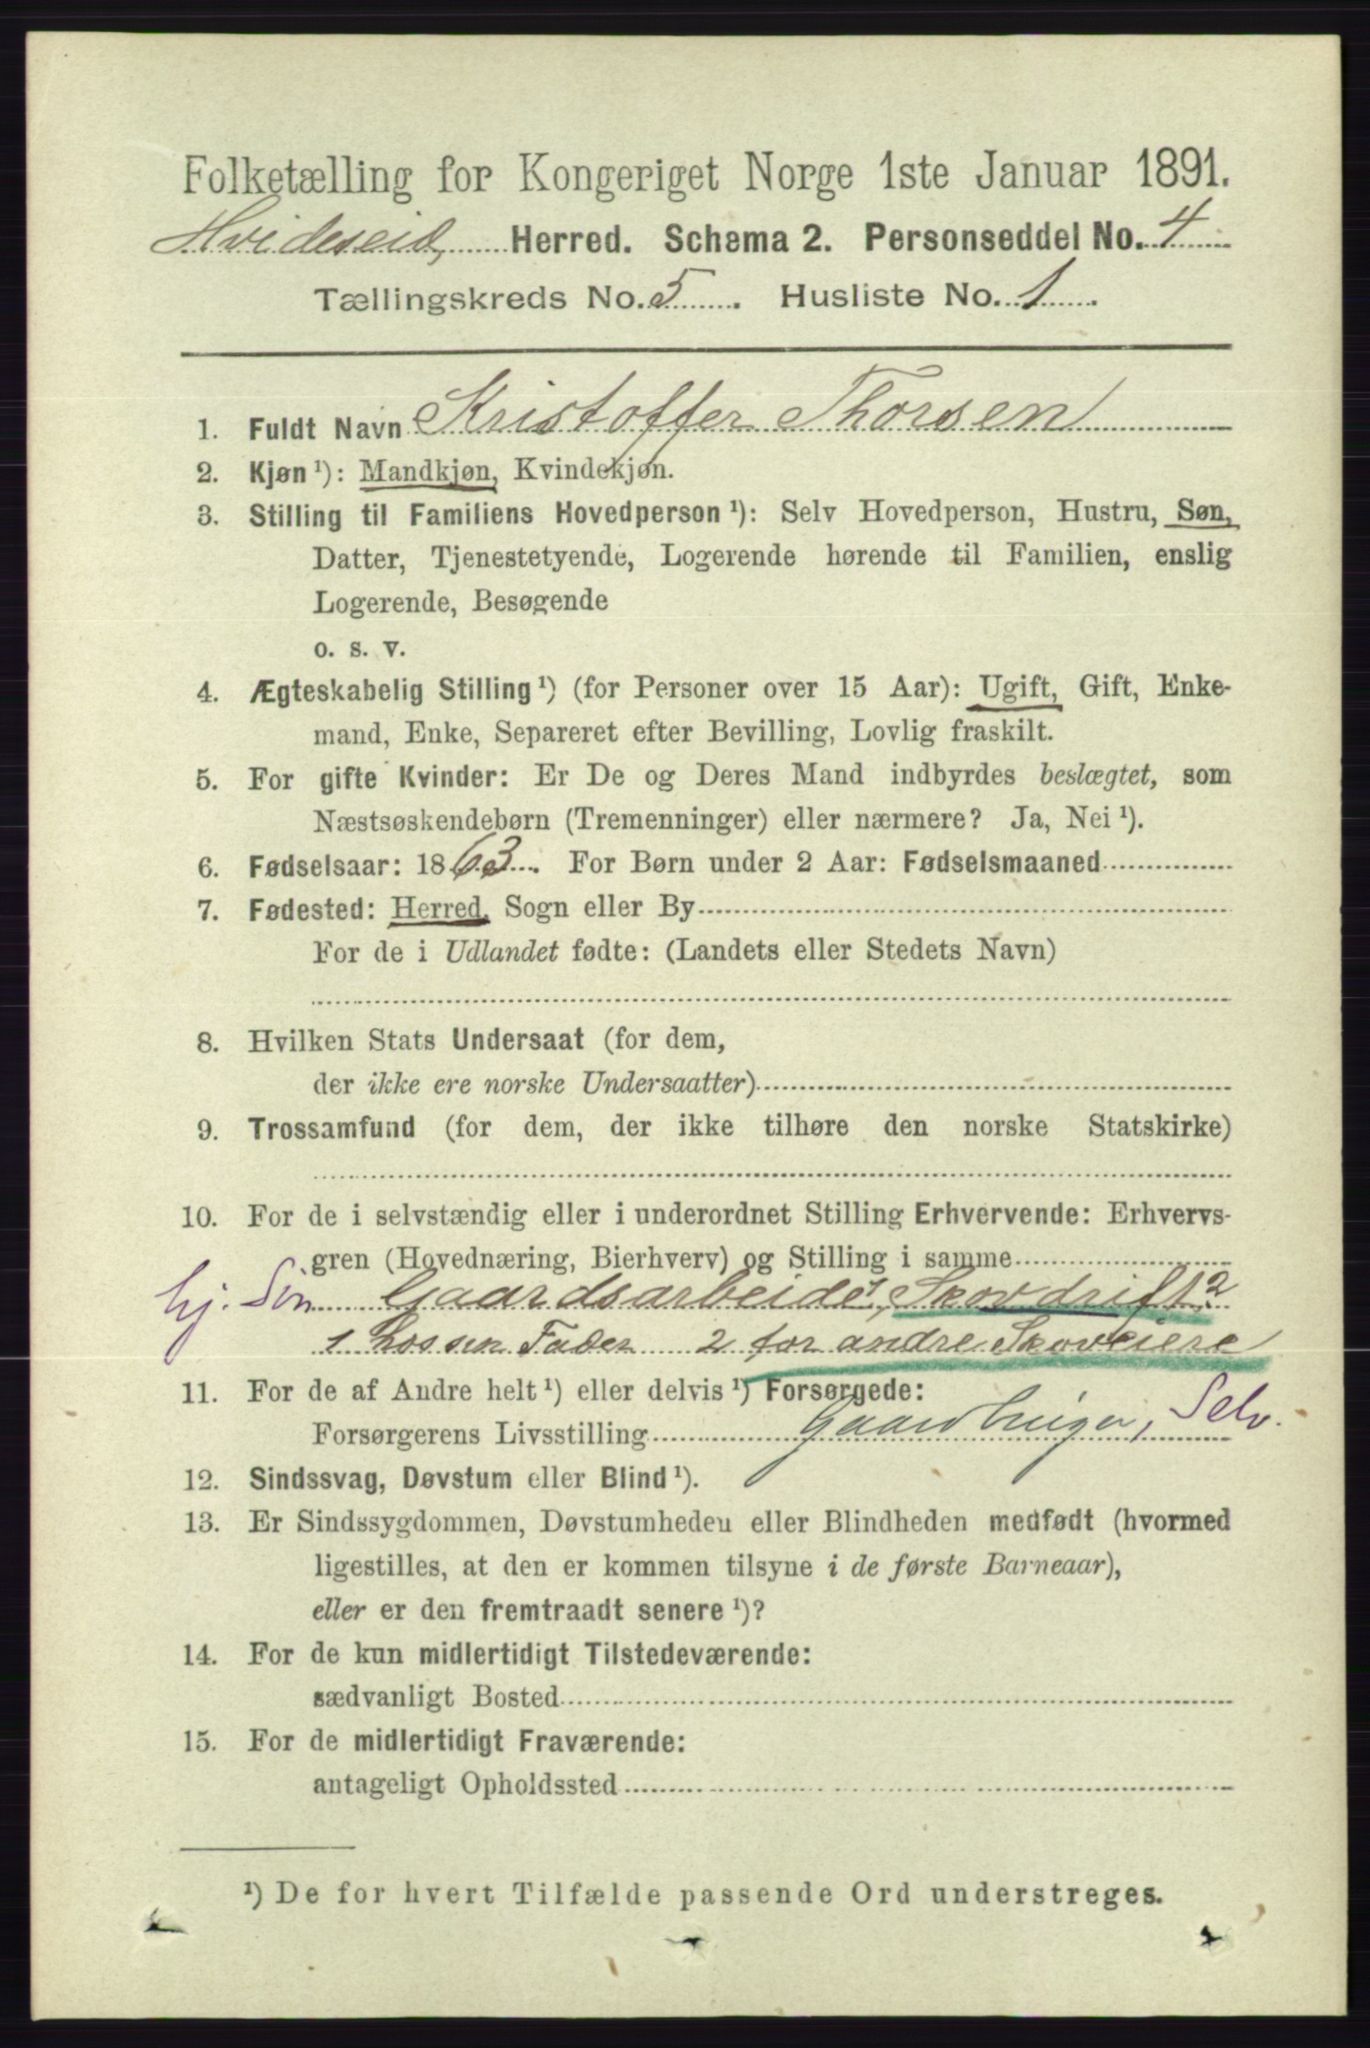 Folketælling for Kongeriget Norge 1ste Januar 1891.
Hvideseid Herred. Schema 2. Personseddel No. 4
Tællingskreds No. 5. Husliste No. 1.
1. Fuldt Navn Kristoffer Thorsen
2. Kjøn ¹): Mandkjøn, Kvindekjøn.
3. Stilling til Familiens Hovedperson ¹): Selv Hovedperson, Hustru, Søn,
Datter, Tjenestetyende, Logerende hørende til Familien, enslig
Logerende, Besøgende
o. s. v.
4. Ægteskabelig Stilling ¹) (for Personer over 15 Aar): Ugift, Gift, Enke-
mand, Enke, Separeret efter Bevilling, Lovlig fraskilt.
5. For gifte Kvinder: Er De og Deres Mand indbyrdes beslægtet, som
Næstsøskendebørn (Tremenninger) eller nærmere? Ja, Nei ¹).
6. Fødselsaar: 1863. For Børn under 2 Aar: Fødselsmaaned
7. Fødested: Herred, Sogn eller By
For de i Udlandet fødte: (Landets eller Stedets Navn)
8. Hvilken Stats Undersaat (for dem,
der ikke ere norske Undersaatter)
9. Trossamfund (for dem, der ikke tilhøre den norske Statskirke)
10. For de i selvstændig eller i underordnet Stilling Erhvervende: Erhvervs-
gren (Hovednæring, Bierhverv) og Stilling i samme
hj. Søn Gaardsarbeide¹, Skovdrift²
1 hos sin Fader 2 for andre Skoveiere
11. For de af Andre helt ¹) eller delvis ¹) Forsørgede:
Forsørgerens Livsstilling Gaardbruger, Selv.
12. Sindssvag, Døvstum eller Blind ¹).
13. Er Sindssygdommen, Døvstumheden eller Blindheden medfødt (hvormed
ligestilles, at den er kommen tilsyne i de første Barneaar),
eller er den fremtraadt senere ¹)?
14. For de kun midlertidigt Tilstedeværende:
sædvanligt Bosted
15. For de midlertidigt Fraværende:
antageligt Opholdssted
¹) De for hvert Tilfælde passende Ord understreges.